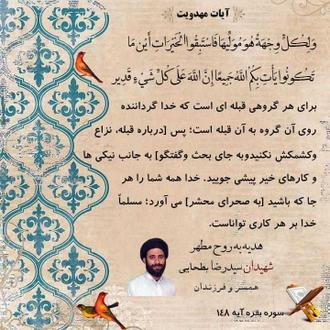 آیات مهدویت
وَلِكُلٍّ وِجْهَةٌ هُوَ مُوَلِّيهَا فَاسْتَبِقُوا الْخَيْرَاتِ أَيْنَ مَا
تَكُونُوا يَأْتِ بِكُمُ اللَّهُ جَمِيعًا إِنَّ اللَّهَ عَلَىٰ كُلِّ شَيْءٍ قَدِيرٌ
برای هر گروهی قبله ای است که خدا گرداننده
روی آن گروه به آن قبله است؛ پس [درباره قبله، نزاع
وکشمکش نکنیدوبه جای بحث وگفتگو] به جانب نیکی ها
و کارهای خیر پیشی جویید. خدا همه شما را هر
جا که باشید [به صحرای محشر] می آورد؛ مسلماً
خدا بر هر کاری تواناست.
هدیه به روح مطهر
شهیدان سیدرضا بطحایی
همسر و فرزندان
سوره بقره آیه ۱۴۸